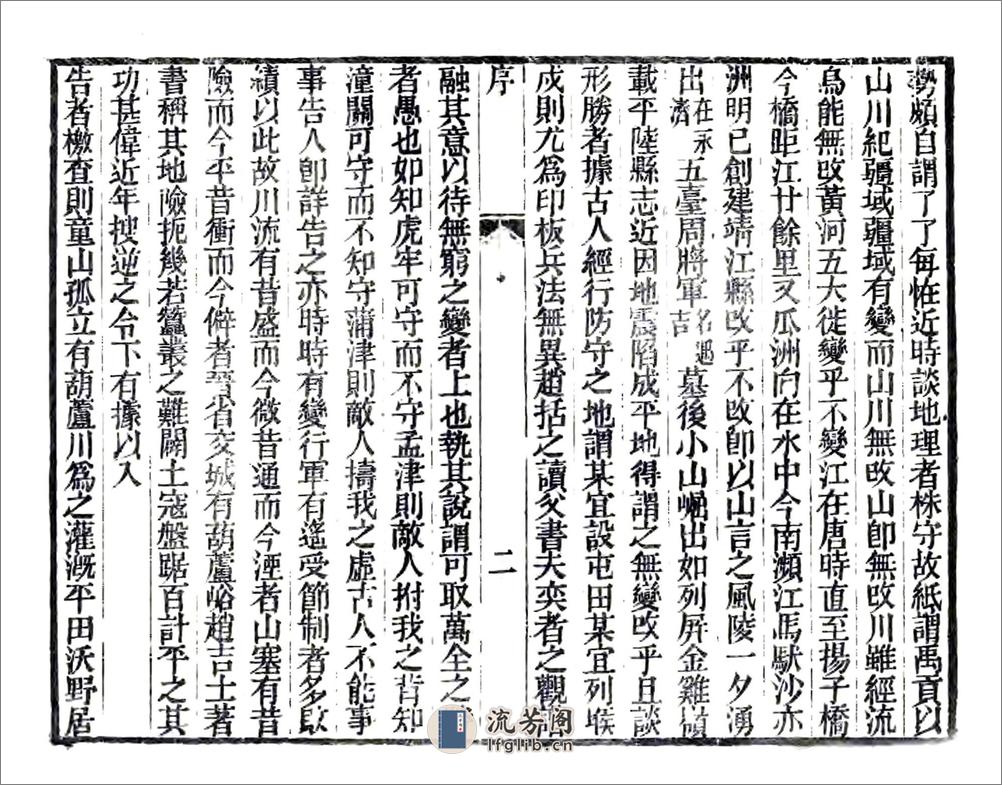 勢頗自謂了了每怪近時談地理者株守故紙謂禹貢以
山川紀疆域疆域有變而山川無改山卽無改川雖經流
烏能無改黃河五大徙變乎不變江在唐時直至揚子橋
今橋距江廿餘里又瓜洲向在水中今南瀕江馬馱沙亦
洲明已創建靖江縣改乎不改卽以山言之風陵一夕湧
出在永濟五臺周將軍名遇吉墓後小山崛出如列屏金雞嶺
載平陸縣志近因地震陷成平地得謂之無變改乎且談
形勝者據古人經行防守之地謂某宜設屯田某宜列堠
戍則尤爲印板兵法無異趙括之讀父書夫奕者之觀譜
序
二
融其意以待無窮之變者上也執其說謂可取萬全之
者愚也如知虎牢可守而不守孟津則敵人拊我之背知
潼關可守而不知守蒲津則敵人擣我之虛古人不能事
事告人卽詳告之亦時時有變行軍有遙受節制者多敗
績以此故川流有昔盛而今微昔通而今湮者山塞有昔
險而今平昔衝而今僻者晉省交城有葫蘆峪趙吉士著
書稱其地險扼幾若蠶叢之難闢土寇盤踞百計平之其
功甚偉近年搜逆之令下有據以入
告者檄查則童山孤立有葫蘆川爲之灌漑平田沃野居
流芳阁
lfglib.cn